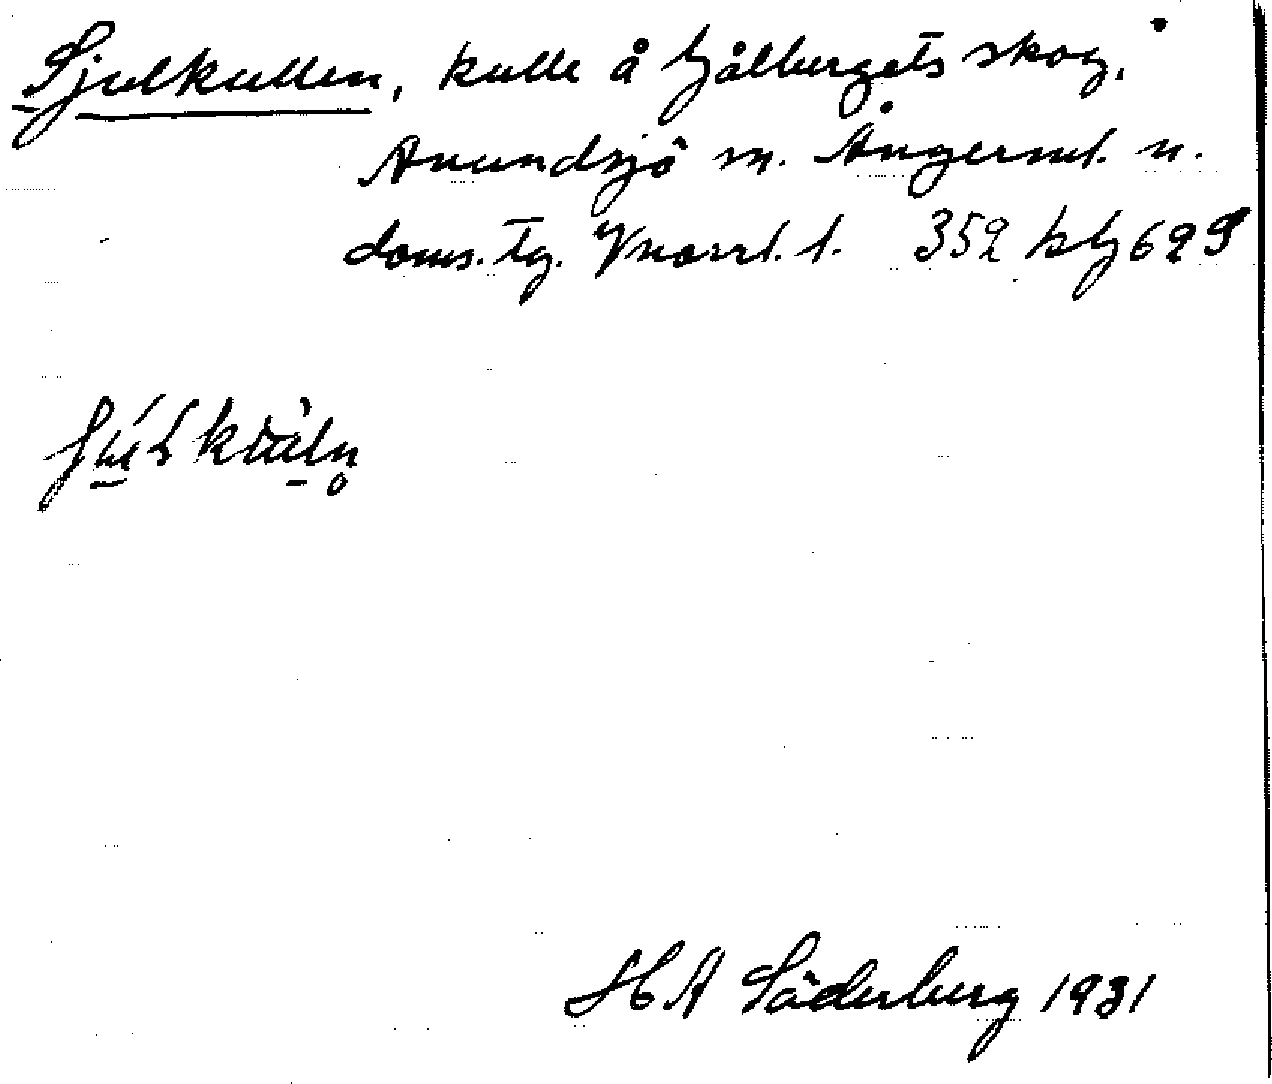 Sjulkullen, kulle å Hjålbergets skog,
Anundsjö sn. Ångerml. n.
doms. tg. Vnorrl. l. 352 blj 629
HA Söderberg 1931